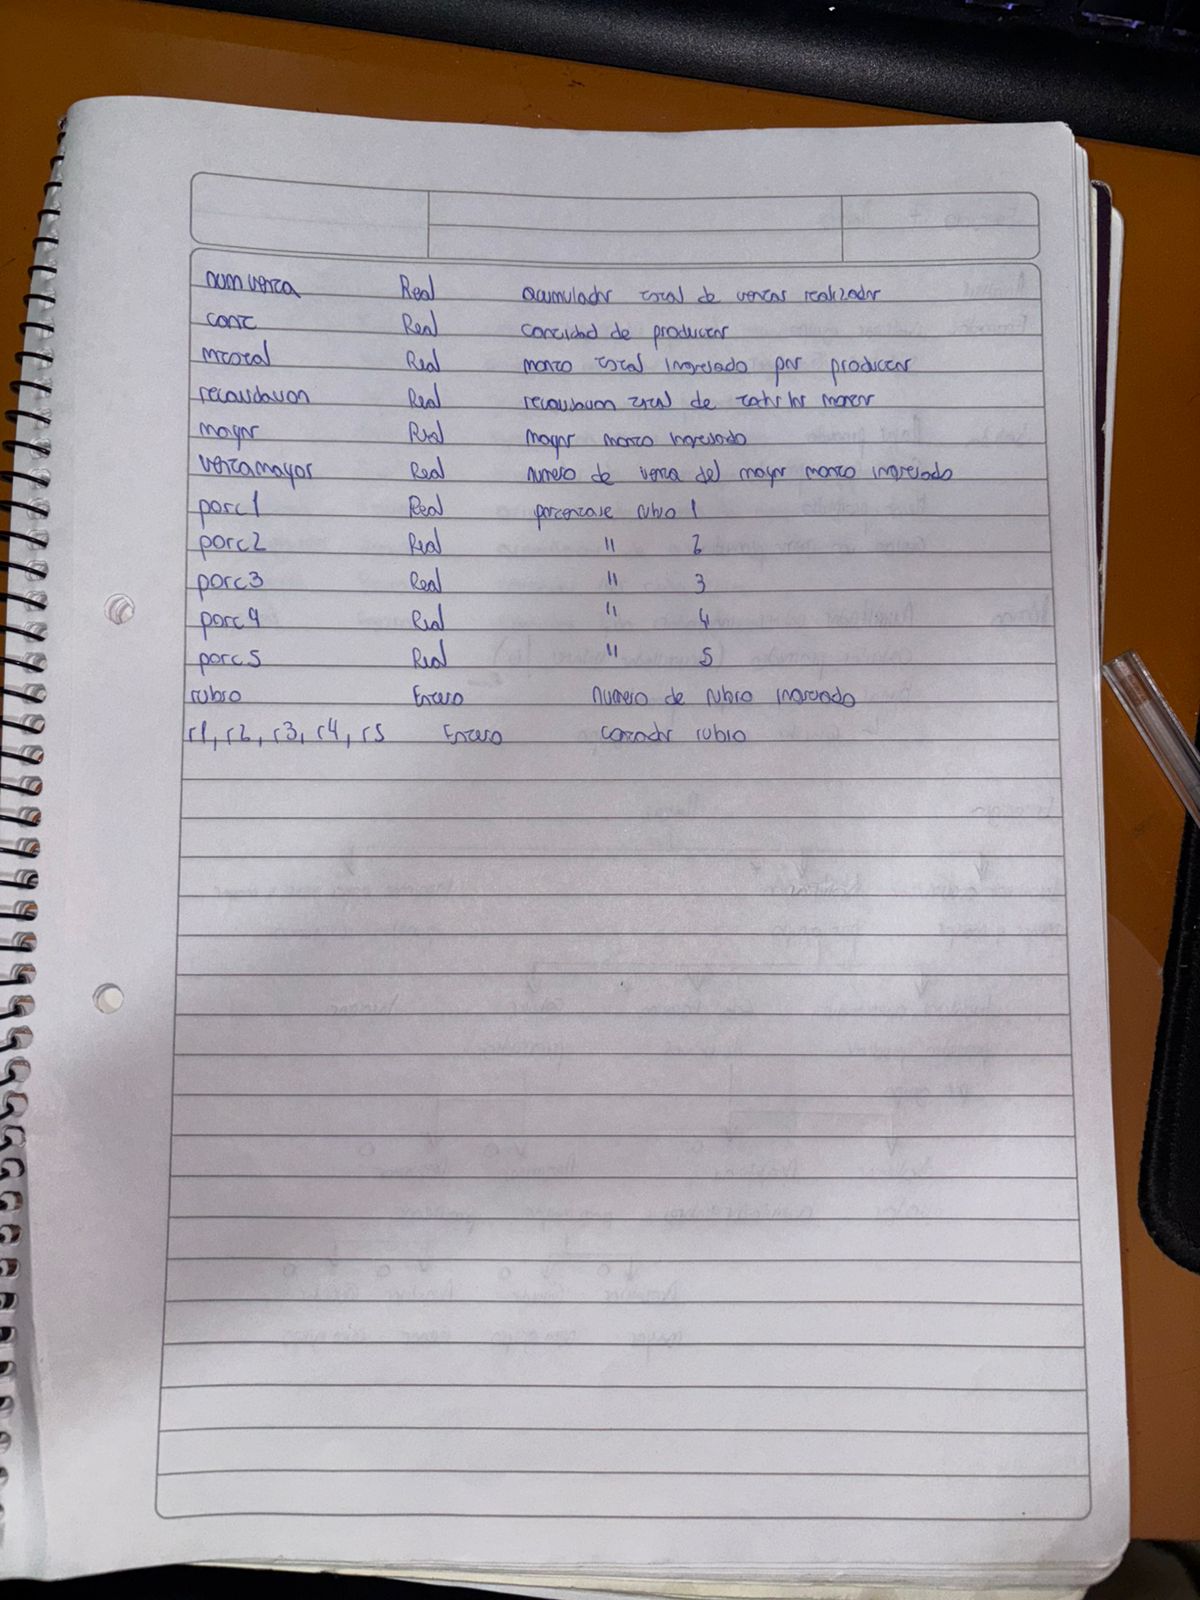 numventa Real acumulador total de ventas realizadas
cant Real cantidad de productos
mtotal Real monto total ingresado por productos
recaudacion Real recaudacion total de todos los montos
mayor Real mayor monto ingresado
ventamayor Real numero de venta del mayor monto ingresado
porc1 Real porcentaje rubro 1
porc2 Real " 2
porc3 Real " 3
porc4 Real " 4
porc5 Real " 5
rubro Entero numero de rubro ingresado
r1, r2, r3, r4, r5 Entero contador rubro